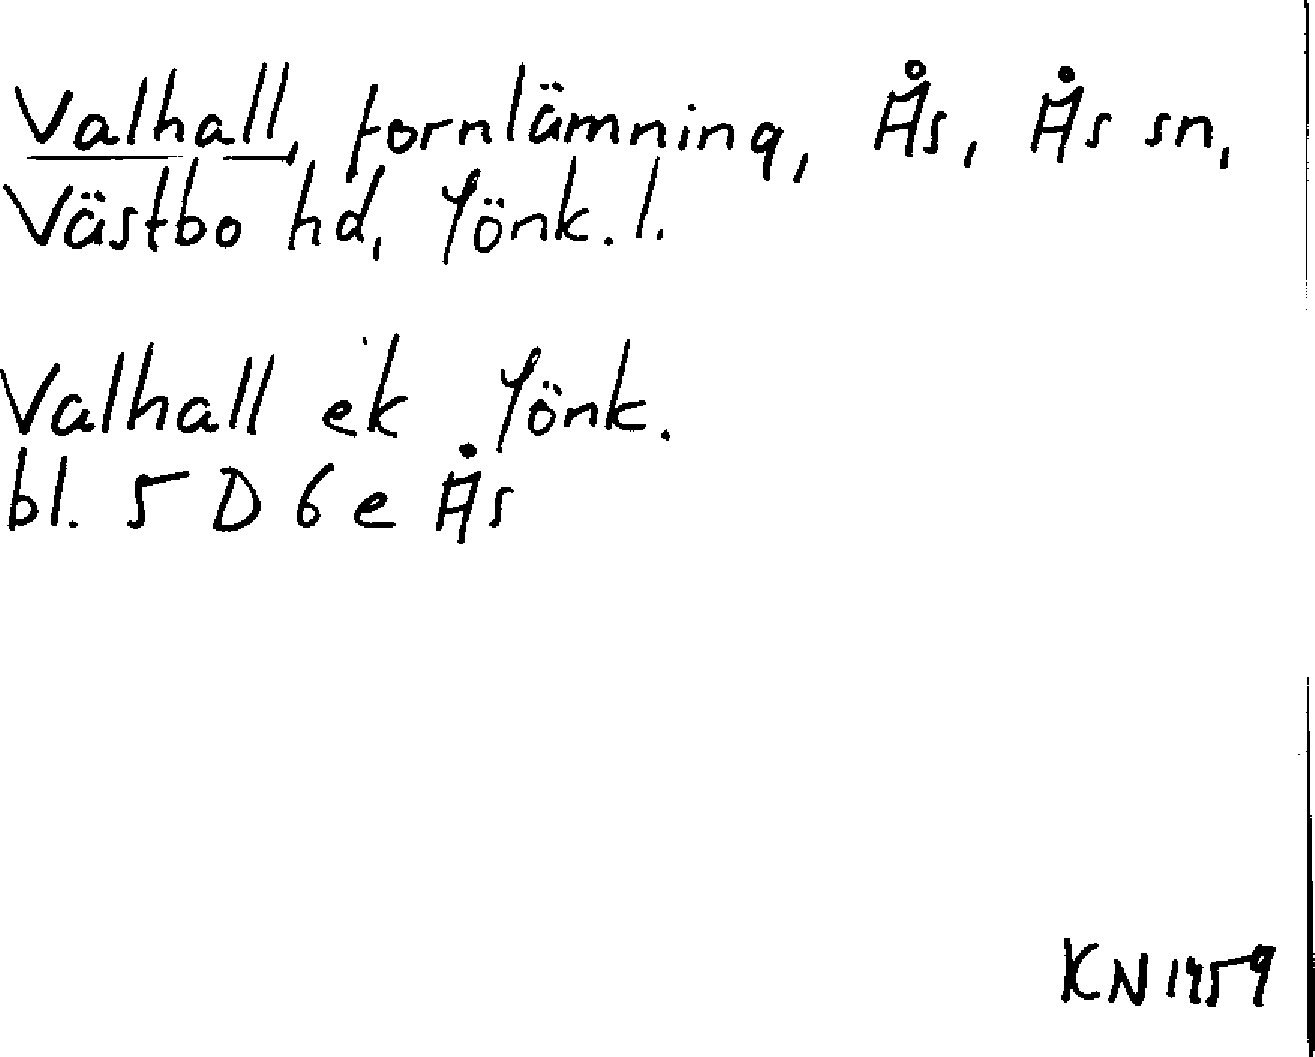 Valhall, fornlämning, Ås, Ås sn,
Västbo hd, Jönk. l.
Valhall ek Jönk.
bl. 5 D 6 e Ås
KN 1959